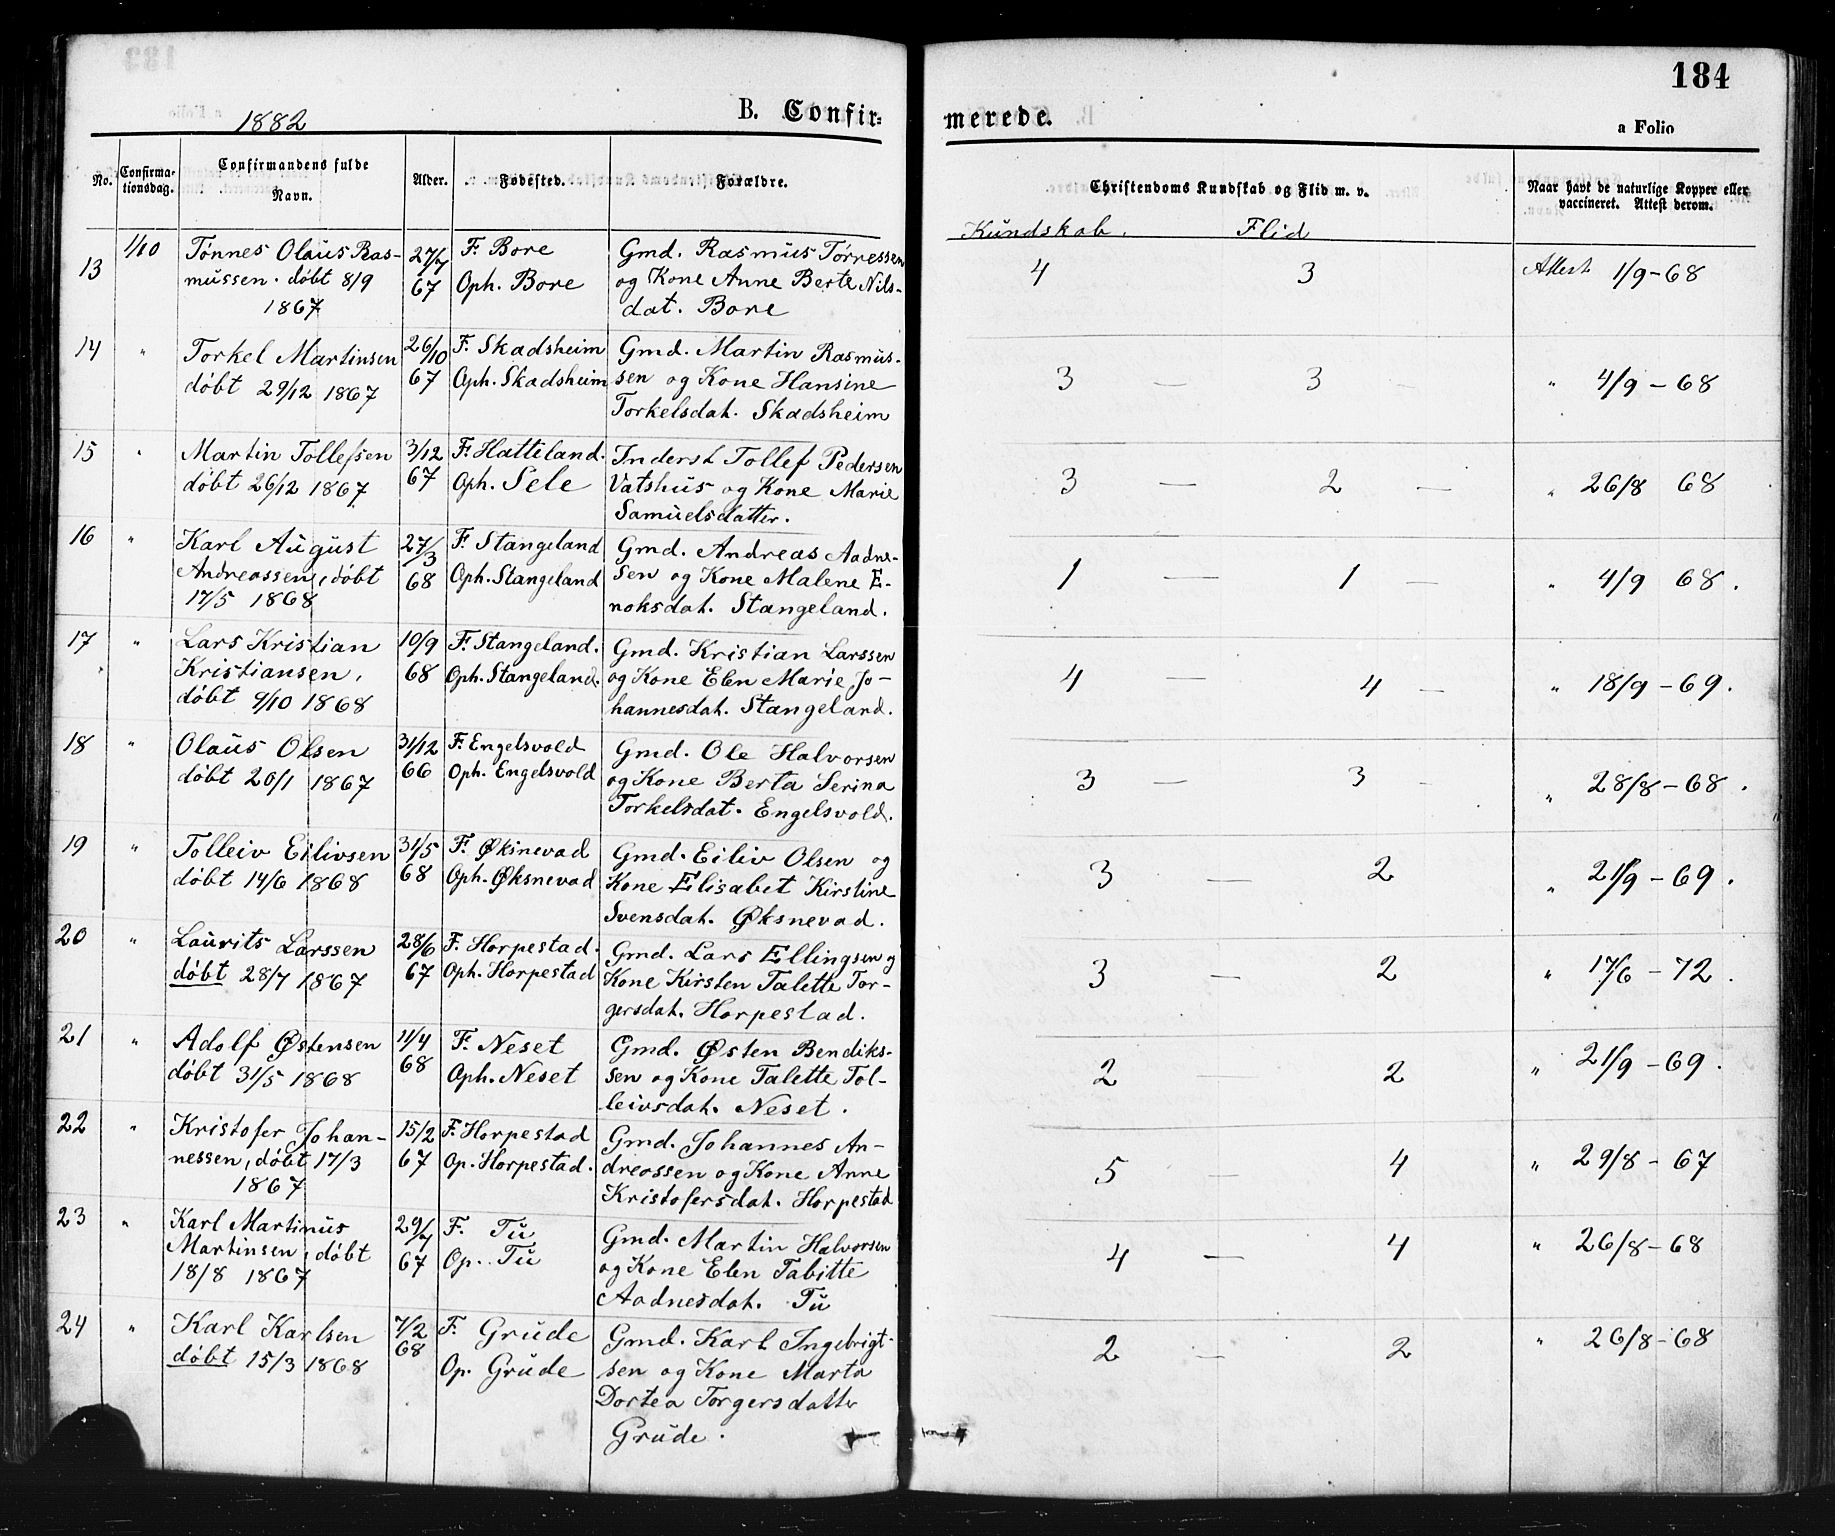 184
1882
B. Confir=
merede.
a Folio
No.
Confirma-
tionsdag.
Confirmandens fulde
Navn.
Alder.
Fødested.
Forældre.
Christendoms Kundskab og Flid m. v.
Naar havt de naturlige Kopper eller
vaccineret. Attest derom.
Kundskab. Flid
13 1/10 Tønnes Olaus Ras- 27/7 F. Bore Gmd. Rasmus Tørressen
mussen. døbt 8/9 67 Oph. Bore og Kone Anne Berte Nils-
1867 dat. Bore
4 3 Attest 1/9-68
14 " Torkel Martinsen 26/10 F. Skadsheim Gmd. Martin Rasmus-
døbt 29/12 1867 67 Oph. Skadsheim sen og Kone Hansine
Torkelsdat. Skadsheim
3 — 3 - " 4/9 - 68
15 " Martin Tollefsen 3/12 F. Hatteland. Inderst Tollef Pedersen
døbt 26/12 1867. 67 Oph. Sele Vatshus og Kone Marie
Samuelsdatter.
3 — 2 — " 26/8 68
16 " Karl August 27/3 F. Stangeland Gmd. Andreas Aadne-
Andreassen, døbt 68 Oph. Stangeland sen og Kone Malene E-
17/5 1868 noksdat. Stangeland.
1 — 1 — " 4/9 68.
17 " Lars Kristian 10/9 F. Stangeland. Gmd. Kristian Larssen
Kristiansen, 68 Oph. Stangeland. og Kone Elen Marie Jo-
døbt 9/10 1868 hannesdat. Stangeland.
4 — 4 — " 18/9 - 69.
18 " Olaus Olsen 31/12 F. Engelsvold Gmd. Ole Halvorsen
døbt 20/1 1867 66 Oph. Engelsvold og Kone Berta Serina
Torkelsdat. Engelsvold.
3 — 3 - " 28/8 - 68.
19 " Tolleiv Eilivsen 31/5 F. Øksnevad Gmd. Eiliv Olsen og
døbt 14/6 1868 68 Oph. Øksnevad Kone Elisabet Kirstine
Svensdat. Øksnevad.
3 — 2 " 21/9 - 69.
20 " Laurits Larssen 28/6 F. Horpestad. Gmd. Lars Ellingsen og
døbt 28/7 1867 67 Oph. Horpestad Kone Kirsten Talette Tor-
gersdat. Horpestad.
3 — 2 " 17/6 - 72.
21 " Adolf Østensen 11/4 F. Neset Gmd. Østen Bendiks-
døbt 31/5 1868 68 Oph. Neset sen og Kone Talette Tol-
leivsdat. Neset.
2 — 2 " 21/9 - 69.
22 " Kristofer Johan- 15/2 F. Horpestad Gmd. Johannes An-
nessen, døbt 17/3 67 Op. Horpestad. dreassen og Kone Anne
1867 Kristofersdat. Horpestad
5 — 4 " 29/8 - 67
23 " Karl Martinus 29/7 F. Tu Gmd. Martin Halvorsen
Martinsen, døbt 67 Op. Tu og Kone Elen Tabitte
18/8 1867 Aadnesdat. Tu
4 — 4 " 26/8 - 68
24 " Karl Karlsen 7/2 F. Grude Gmd. Karl Ingebrigt-
døbt 15/3 1868 68 Op. Grude sen og Kone Marta
Dortea Torgersdatter
Grude.
2 — 2 " 26/8-68